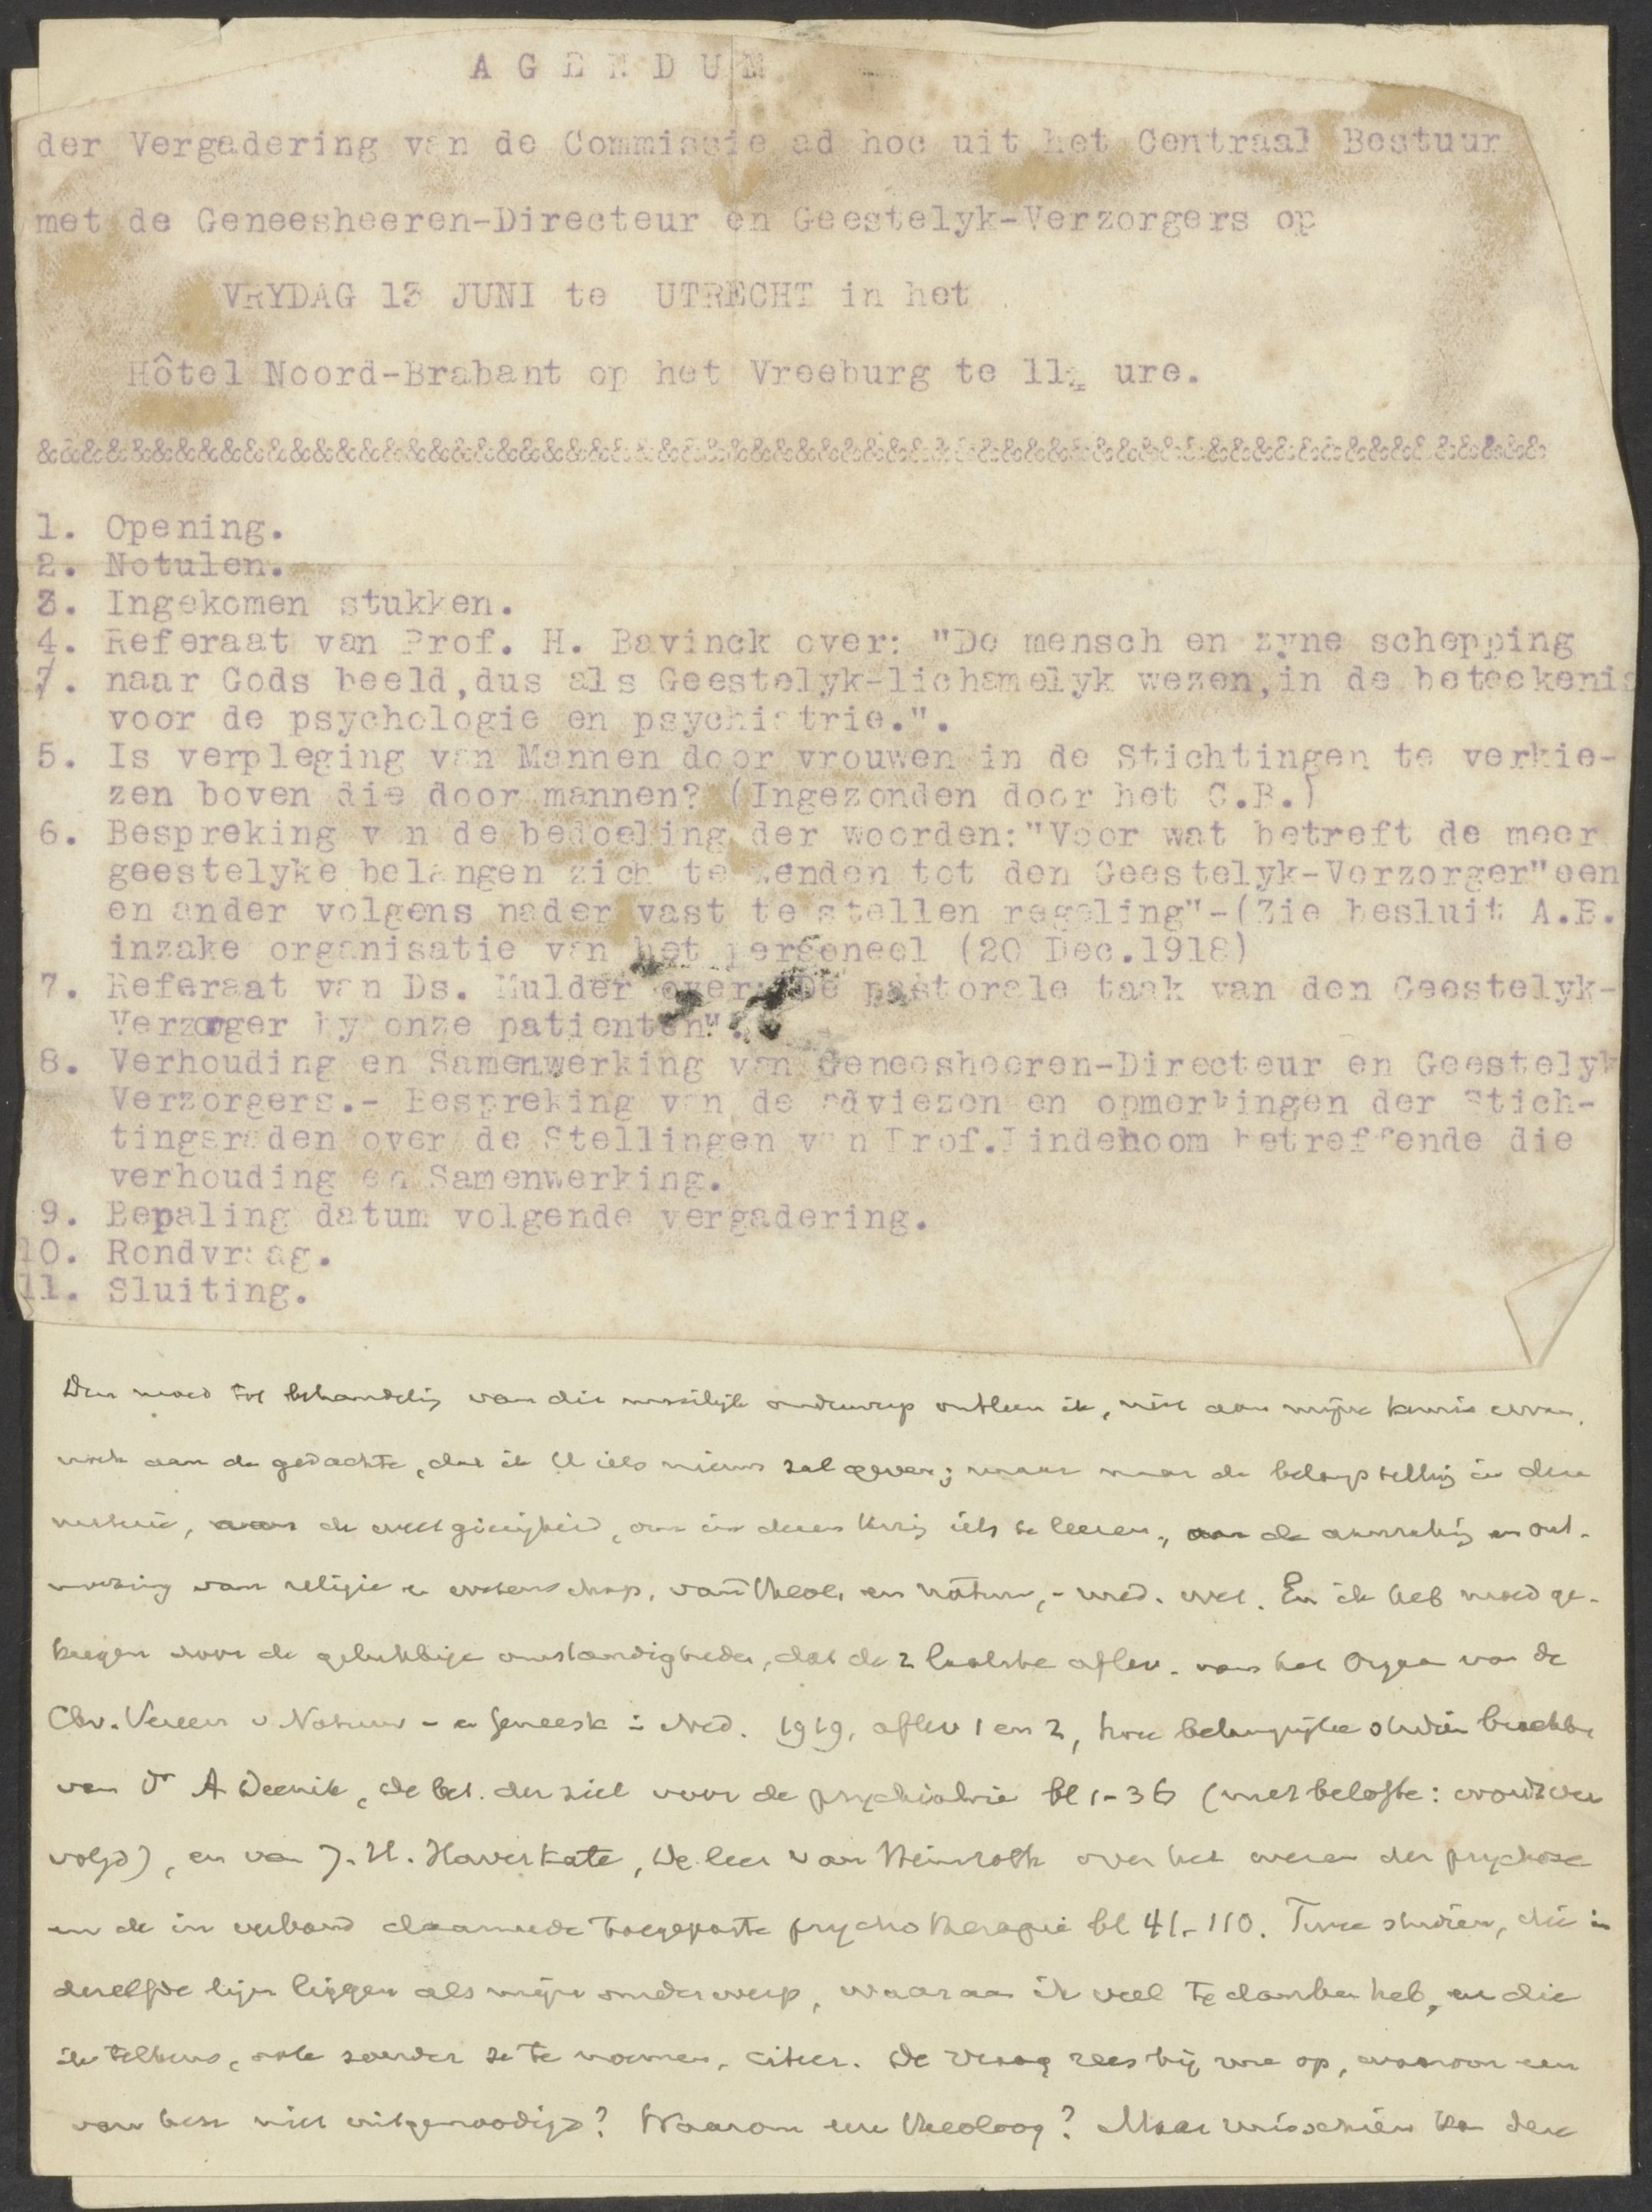 AGENDUM
der Vergadering van de Commissie ad hoc uit het Centraal Bestuur
met de Geneesheeren-Directeur en Geestelyk-Verzorgers op
VRYDAG 13 JUNI te UTRECHT in het
Hôtel Noord-Brabant op het Vreeburg te 11¼ ure.
&&&&&&&&&&&&&&&&&&&&&&&&&&&&&&&&&&&&&&&&&&&&&&&&&&&&&&&&&&&&&&&&&&
1. Opening.
2. Notulen.
3. Ingekomen stukken.
4. Referaat van Prof. H. Bavinck over: "De mensch en zyne schepping
7. naar Gods beeld,dus als Geestelyk-lichamelyk wezen,in de beteekenis
voor de psychologie en psychiatrie.".
5. Is verpleging van Mannen door vrouwen in de Stichtingen te verkie-
zen boven die door mannen? (Ingezonden door het C.B.)
6. Bespreking van de bedoeling der woorden:"Voor wat betreft de meer
geestelyke belangen zich te wenden tot den Geestelyk-Verzorger"een
en ander volgens nader vast te stellen regeling"-(Zie besluit A.B.
inzake organisatie van het personeel (20 Dec.1918)
7. Referaat van Ds. Mulder over: De pastorale taak van den Geestelyk-
Verzorger by onze patienten".
8. Verhouding en Samenwerking van Geneesheeren-Directeur en Geestelyk
Verzorgers.- Bespreking van de adviezen en opmerkingen der Stich-
tingsraden over de Stellingen van Prof.Lindeboom betreffende die
verhouding en Samenwerking.
9. Bepaling datum volgende vergadering.
10. Rondvraag.
11. Sluiting.
Den moed tot behandeling van dit moeilijk onderwerp ontleen ik, niet aan mijne kennis ervan,
noch aan de gedachte, dat ik U iets nieuws zal geven; maar de belangstelling in deze
materie, aan de weetgierigheid, om in dezen kring iets te leeren, aan de aanraking en ont-
moeting van religie en wetenschap, van theol. en natuur, - med. wet. En ik heb moed ge-
kregen door de gelukkige omstandigheden, dat de 2 laatste aflev. van het Orgaan van de
Chr. Vereen. v Natuur - en Geneesk in Ned. 1919, aflev 1 en 2, twee belangrijke studiën brachten
van Dr A Deenik, de bet. der ziel voor de psychiatrie bl 1-36 (met belofte: wordt ver
volgd), en van J. H. Haverkate, De leer van Heinroth over het wezen der psychose
en de in verband daarmede toegepaste psychotherapie bl 41-110. Twee studiën, die in
dezelfde lijn liggen als mijn onderwerp, waaraan ik veel te danken heb, en die
ik telkens, ook zonder ze te noemen, citeer. De vraag rees bij me op, waarom een
van hen niet uitgenoodigd? Waarom een theoloog? Maar misschien kan deze